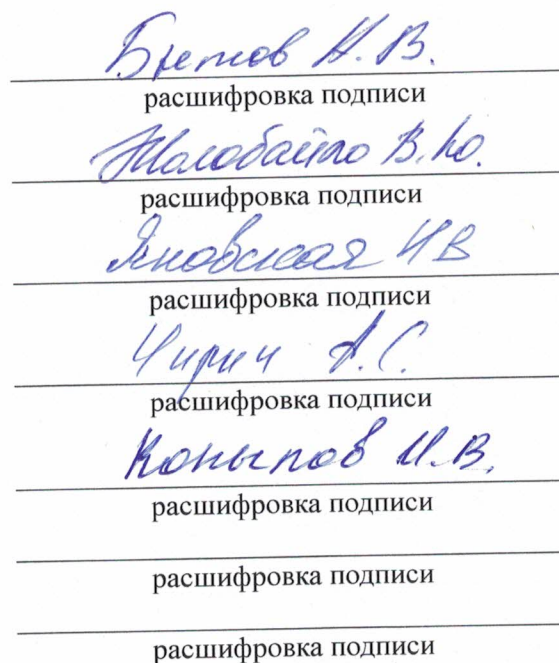 Бретов Н. В.
расшифровка подписи
Жолобайло В. Ю.
расшифровка подписи
Яновская И В
расшифровка подписи
Чирич А. С.
расшифровка подписи
Копылов И. В.
расшифровка подписи
расшифровка подписи
расшифровка подписи